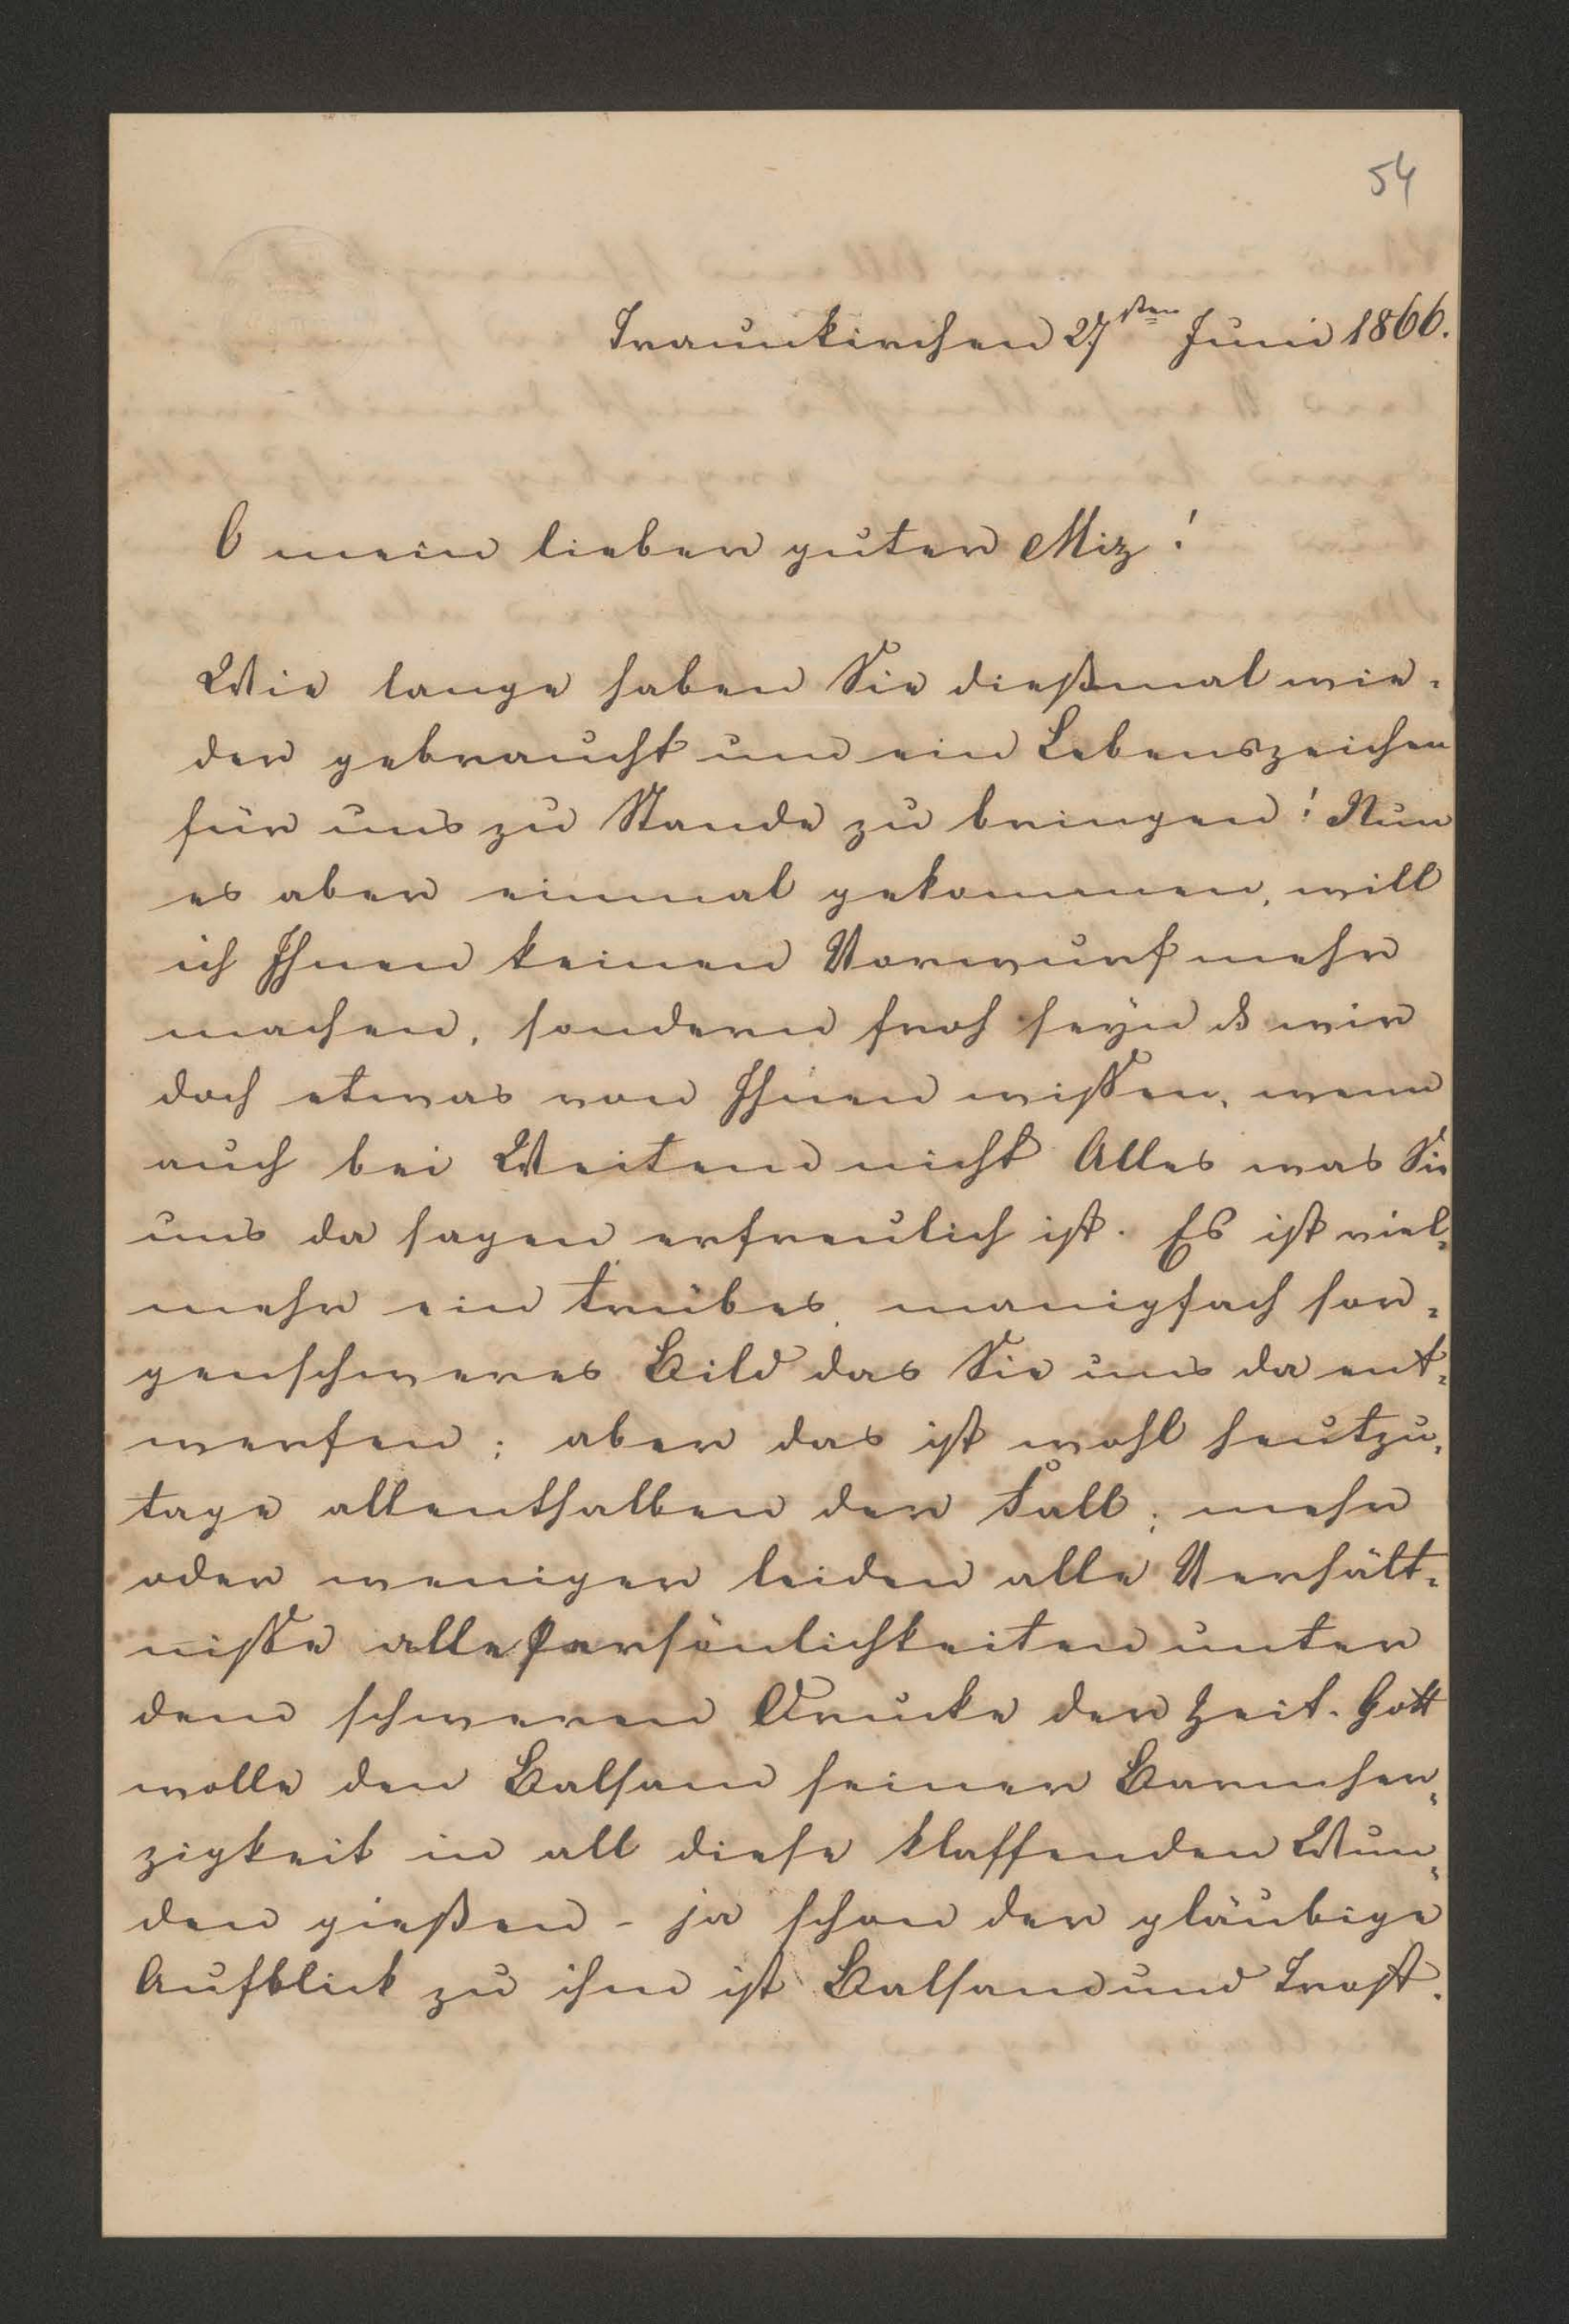 54
Traunkirchen 27sten Juni 1866.
O mein lieber guter Miz!
Wie lange haben Sie dießmal wie-
der gebraucht um ein Lebenszeichen
für uns zu Stande zu bringen! Nun
es aber einmal gekommen, will
ich Ihnen keinen Vorwurf mehr
machen, sondern froh seyn ds wir
doch etwas von Ihnen wissen, wenn
auch bei Weitem nicht Alles was Sie
uns da sagen erfreulich ist. Es ist viel-
mehr ein trübes, manigfach sor-
genschweres Bild das Sie uns da ent-
werfen; aber das ist wohl heutzu-
tage allenthalben der Fall; mehr
oder weniger leiden alle Verhält-
nisse alle Persönlichkeiten unter
dem schweren Drucke der Zeit. Gott
wolle den Balsam seiner Barmher-
zigkeit in all diese klaffenden Wun-
den gießen - ja schon der gläubige
Aufblick zu ihm ist Balsam und Trost.